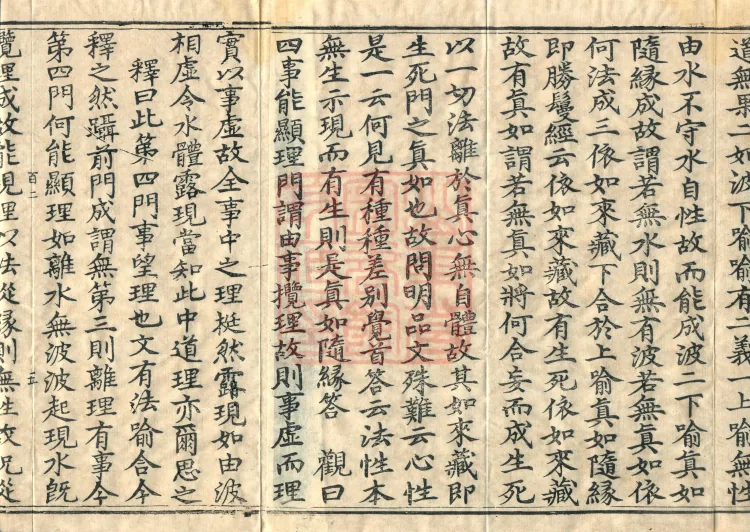 道無果二如波下喻喻有二義一上喻無性
由水不守水自性故而能成波二下喻真如
隨緣成故謂若無水則無有波若無真如依
何法成三依如來藏下合於上喻真如隨緣
即勝鬘經云依如來藏故有生死依如來藏
故有真如謂若無真如將何合妄而成生死
以一切法離於真心無自體故其如來藏即
生死門之真如也故問明品文殊難云心性
是一云何見有種種差別覺首答云法性本
無生示現而有生則是真如隨緣答 觀曰
四事能顯理門謂由事攬理故則事虛而理
實以事虛故全事中之理挺然露現如由波
相虛令水體露現當知此中道理亦爾思之
釋曰此第四門事望理也文有法喻合今
釋之然躡前門成謂無第三則離理有事今
第四門何能顯理如離水無波波起現水既
百二 五
攬理成故能見理以法從緣則無生故況從